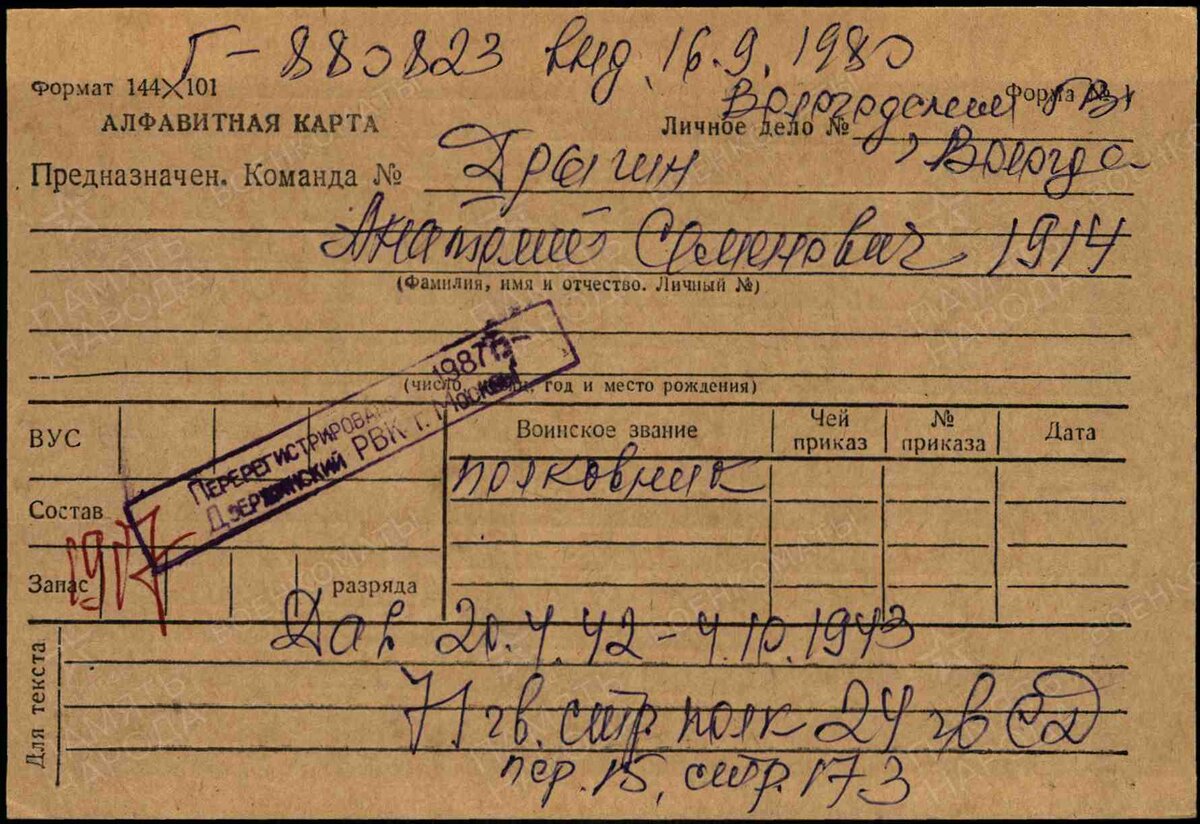 Г-880823 выд. 16.9.1980
Формат 144×101
Форма № 1
Вологодским ГВК
АЛФАВИТНАЯ КАРТА
Личное дело №
г. Вологда
Предназначен. Команда №
Дрыгин
Анатолий Семенович 1914
(Фамилия, имя и отчество. Личный №)
ПЕРЕРЕГИСТРИРОВАН 1987 г.
ДЗЕРЖИНСКИЙ РВК г. Москвы
(число, год и место рождения)
ВУС
Воинское звание
Чей приказ
№ приказа
Дата
полковник
Состав
Запас
разряда
Для текста
20.4.42 - 4.10.1943
71 гв. стр. полк 24 гв СД
пер. 15, стр. 173
ПАМЯТЬ НАРОДА
ВОЕНКОМАТЫ